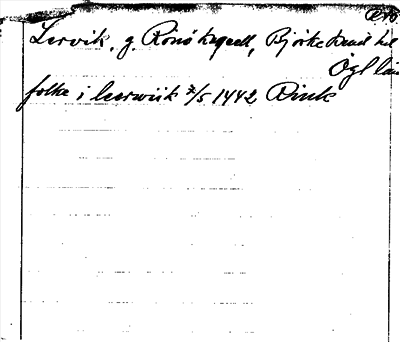 Lervik, g. Rönö kapell, Björkekind hd
Ögl län
folke i leerwiik 3/5 1442 Dink